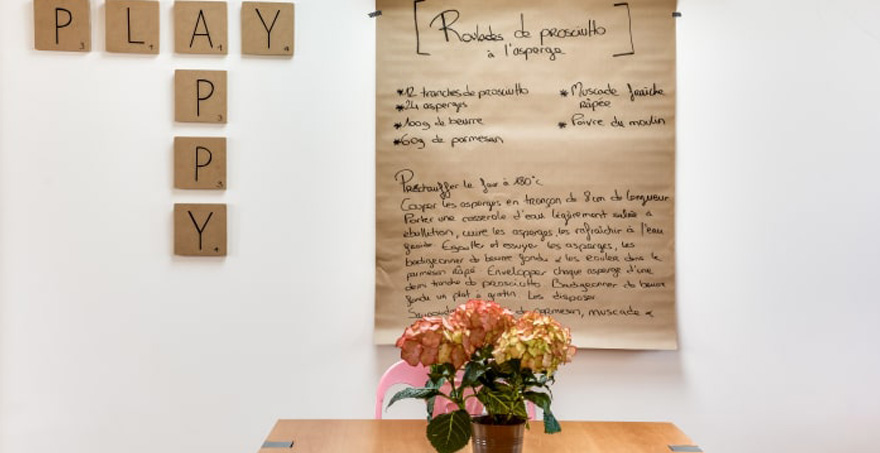 PLAY
P
P
Y
[Roulades de prosciutto]
à l'asperge
*12 tranches de prosciutto
*24 asperges
*100g de beurre
*60g de parmesan
*Muscade fraîche
râpée
*Poivre du moulin
Préchauffer le four à 180°c
Couper les asperges en tronçon de 8 cm de longueur
Porter une casserole d'eau légèrement salée à
ébullition, cuire les asperges, les rafraîchir à l'eau
Égoutter et essuyer les asperges, les
badigeonner de beurre fondu & les rouler dans le
parmesan râpé. Envelopper chaque asperge d'une
demi tranche de prosciutto. Badigeonner de beurre
fondu un plat à gratin. Les disposer
de parmesan, muscade &